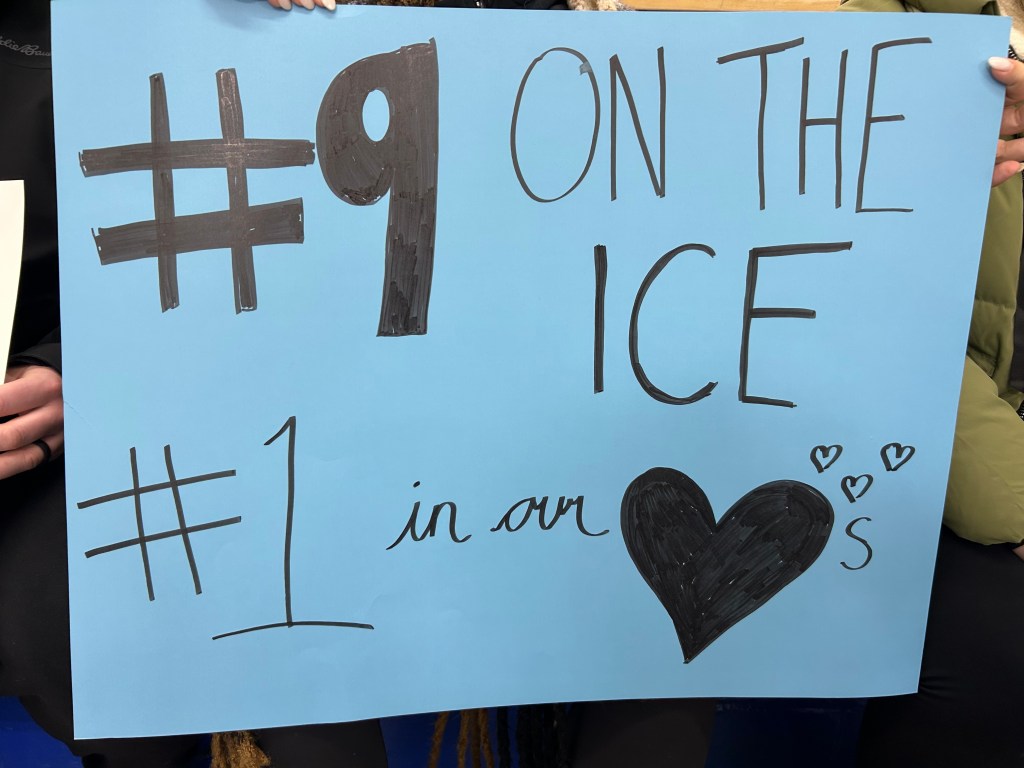 #9 ON THE
ICE
#1 in our ♥s